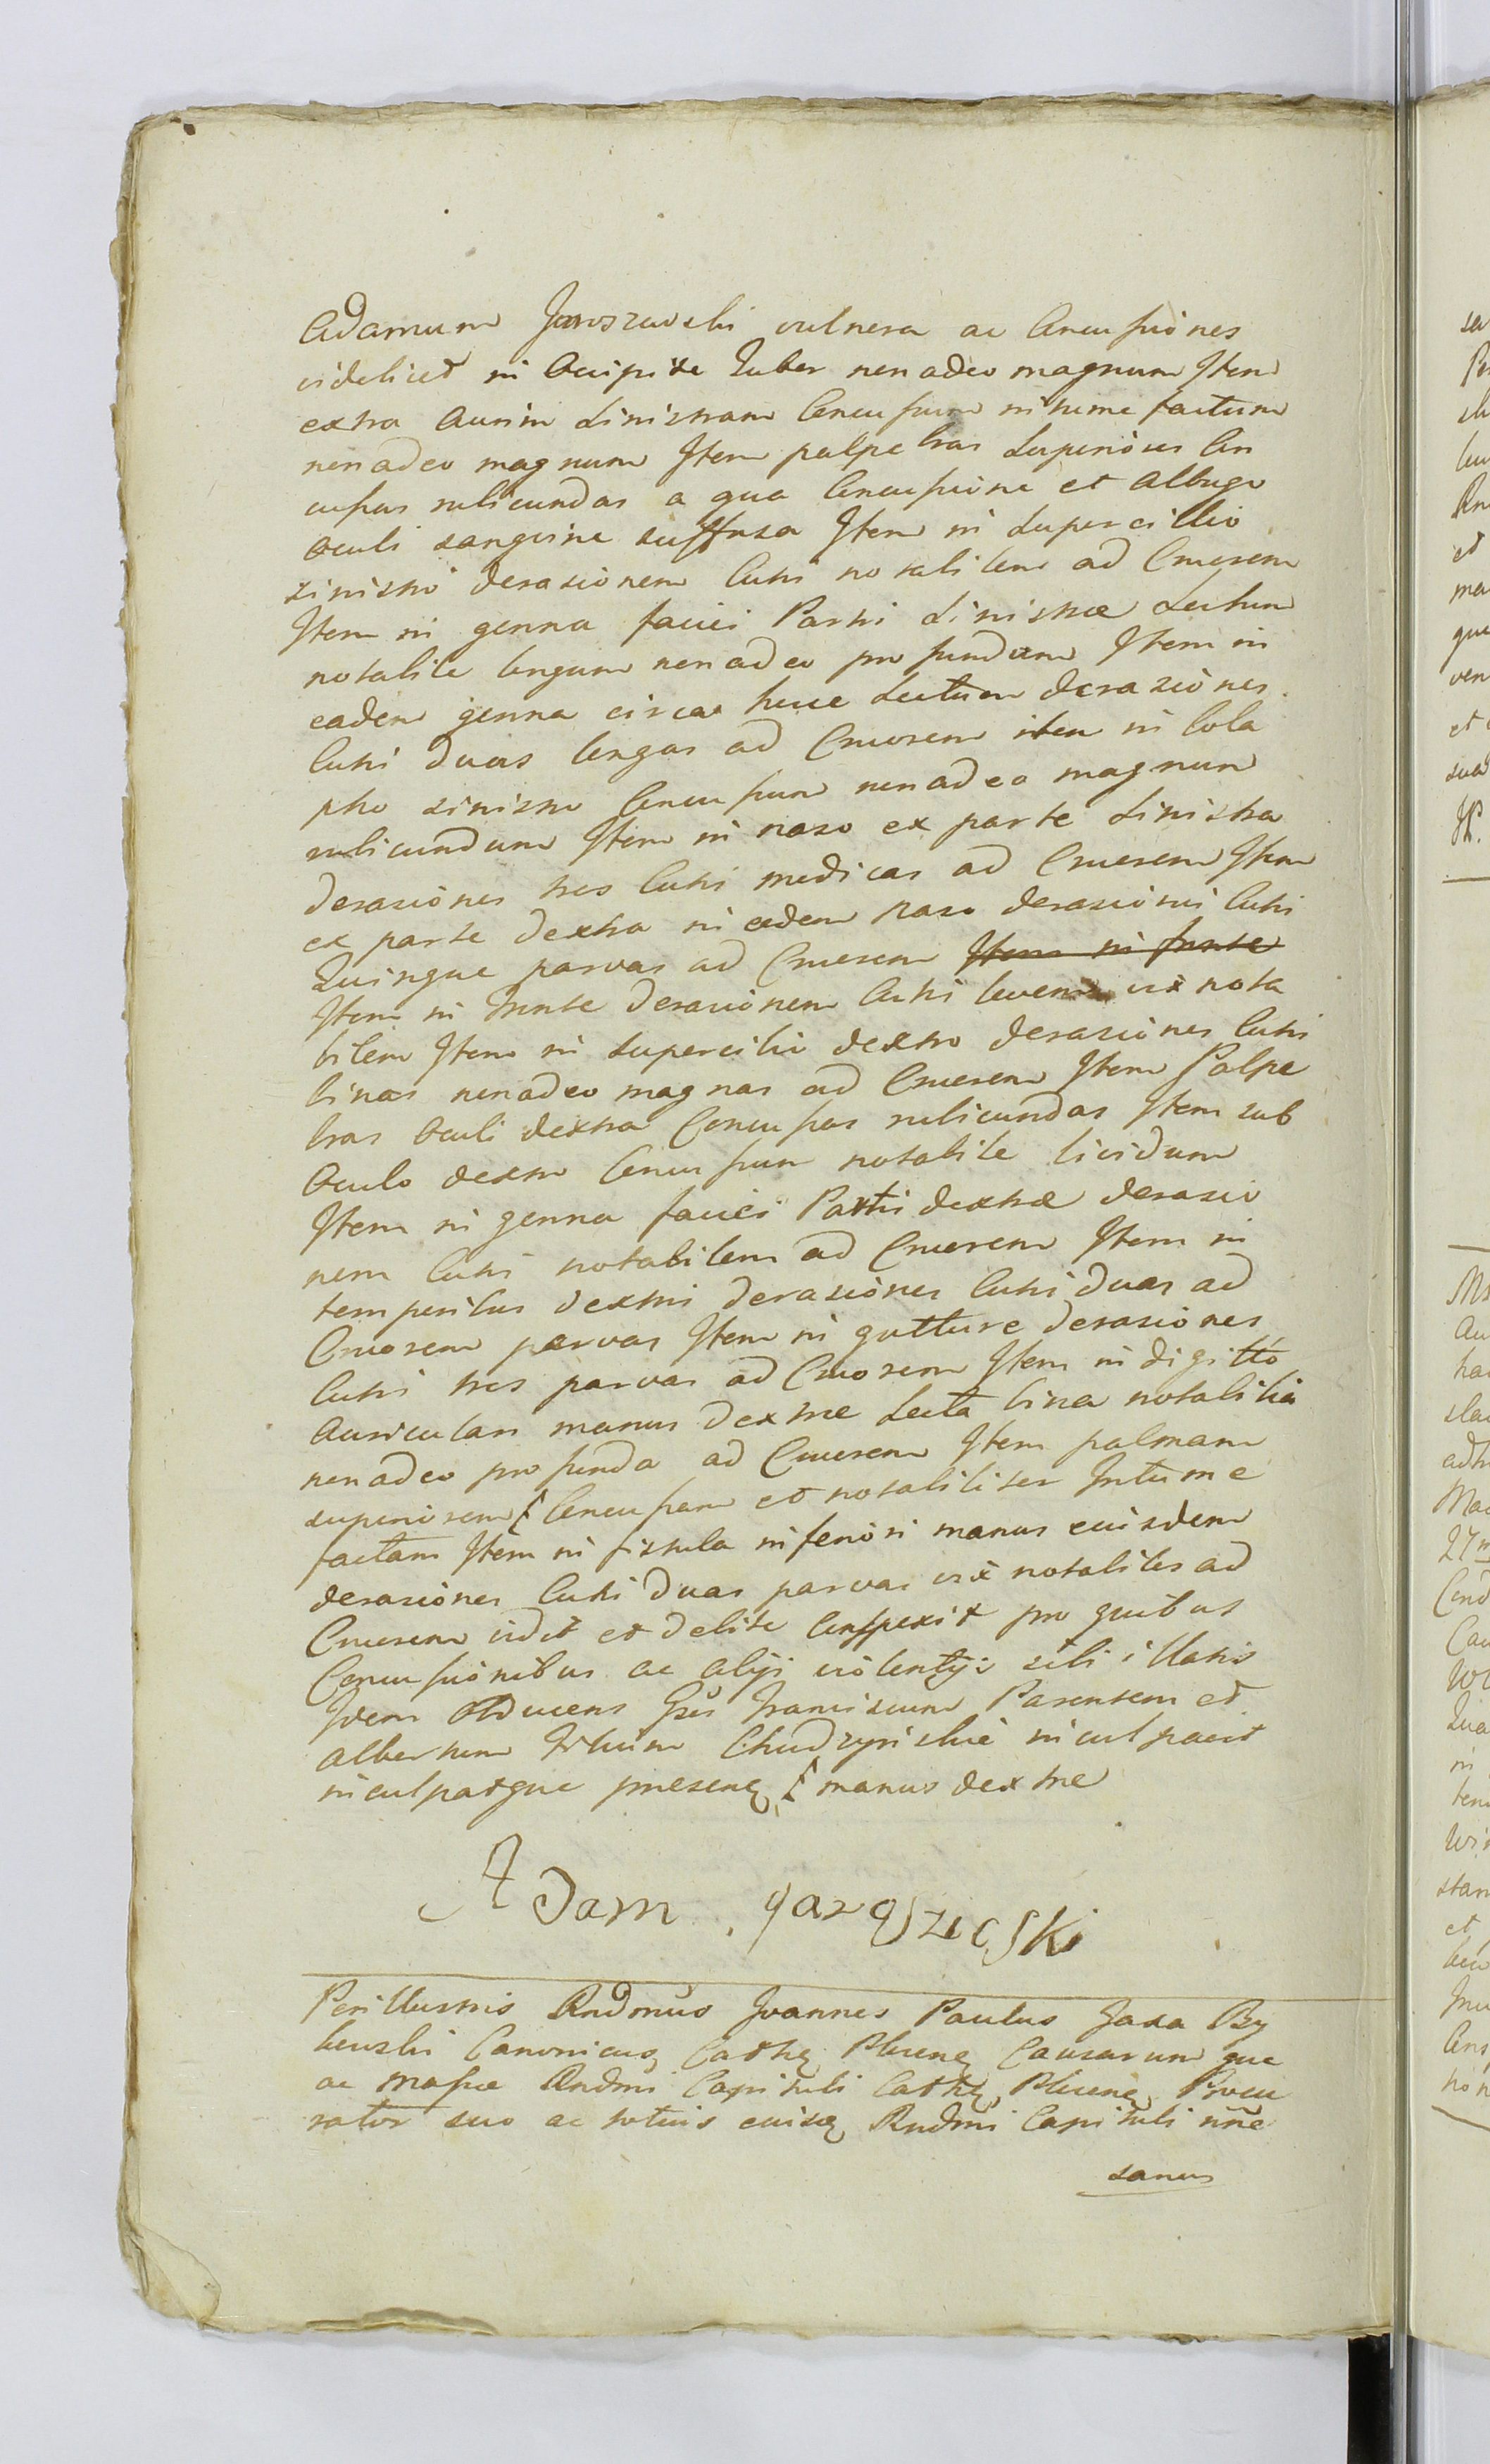 Adamum Jaroszewski vulnera ac Concussiones
videlicet in Occipite Tuber non adeo magnum Item
extra Aurim Sinistram Concussum intume factum
non adeo magnum Item palpebras Superiores Con
cussas rubicundas a qua Concussione et Albugo
Oculi sanguine suffusa Item in Supercillio
sinistro derasionem Cutis notabilem ad Cruorem
Item in genna faciei Partis Sinistræ Sectum
notabile longum non adeo profundum Item in
eadem genna circa hocce Sectum derasiones
Cutis duas longas ad Cruorem item in Cola
pho sinistro Concussum non adeo magnum
rubicundum Item in naso ex parte Sinistra
derasiones tres Cutis medicas ad Cruorem Item
ex parte dextra in eodem naso derasiones Cutis
Quinque parvas ad Cruorem Item in fronte
Item in fronte derasionem Cutis levem vix nota
bilem Item in Supercilio dextro derasiones Cutis
binas non adeo magnas ad Cruorem Item Palpe
bras Oculi dextra Concussas rubicundas Item sub
Oculo dextro Concussum notabile lividum
Item in genna faciei Partis dextræ derasio
nem Cutis notabilem ad Cruorem Item in
temporibus dextris derasiones Cutis duas ad
Cruorem parvas Item in gutture derasiones
Cutis tres parvas ad Cruorem Item in digitto
Auriculari manus dextræ Secta bina notabilia
non adeo profunda ad Cruorem Item palmam
superiorem Concussam et notabiliter Intume
factam Item in fistula inferiori manus eiusdem
derasiones Cutis duas parvas vix notabiles ad
Cruorem vidit et debite Conspexit pro quibus
Concussionibus ac alijs violentijs sibi illatis
Idem Obducens Gsos Franciscum Parentem et
Albertum Filium Chudzynskie inculpavit
inculpatque præsenq manus dextræ
Adam Jaroszeski
Perillustris Rndmus Joannes Paulus Jaxa By
kowski Canonicus Cathq Plocenq Causarum que
ac Massæ Rndmi Capituli Cathq Plocenq Procu
rator suo ac totius eiusq Rndmi Capituli nne
sanus